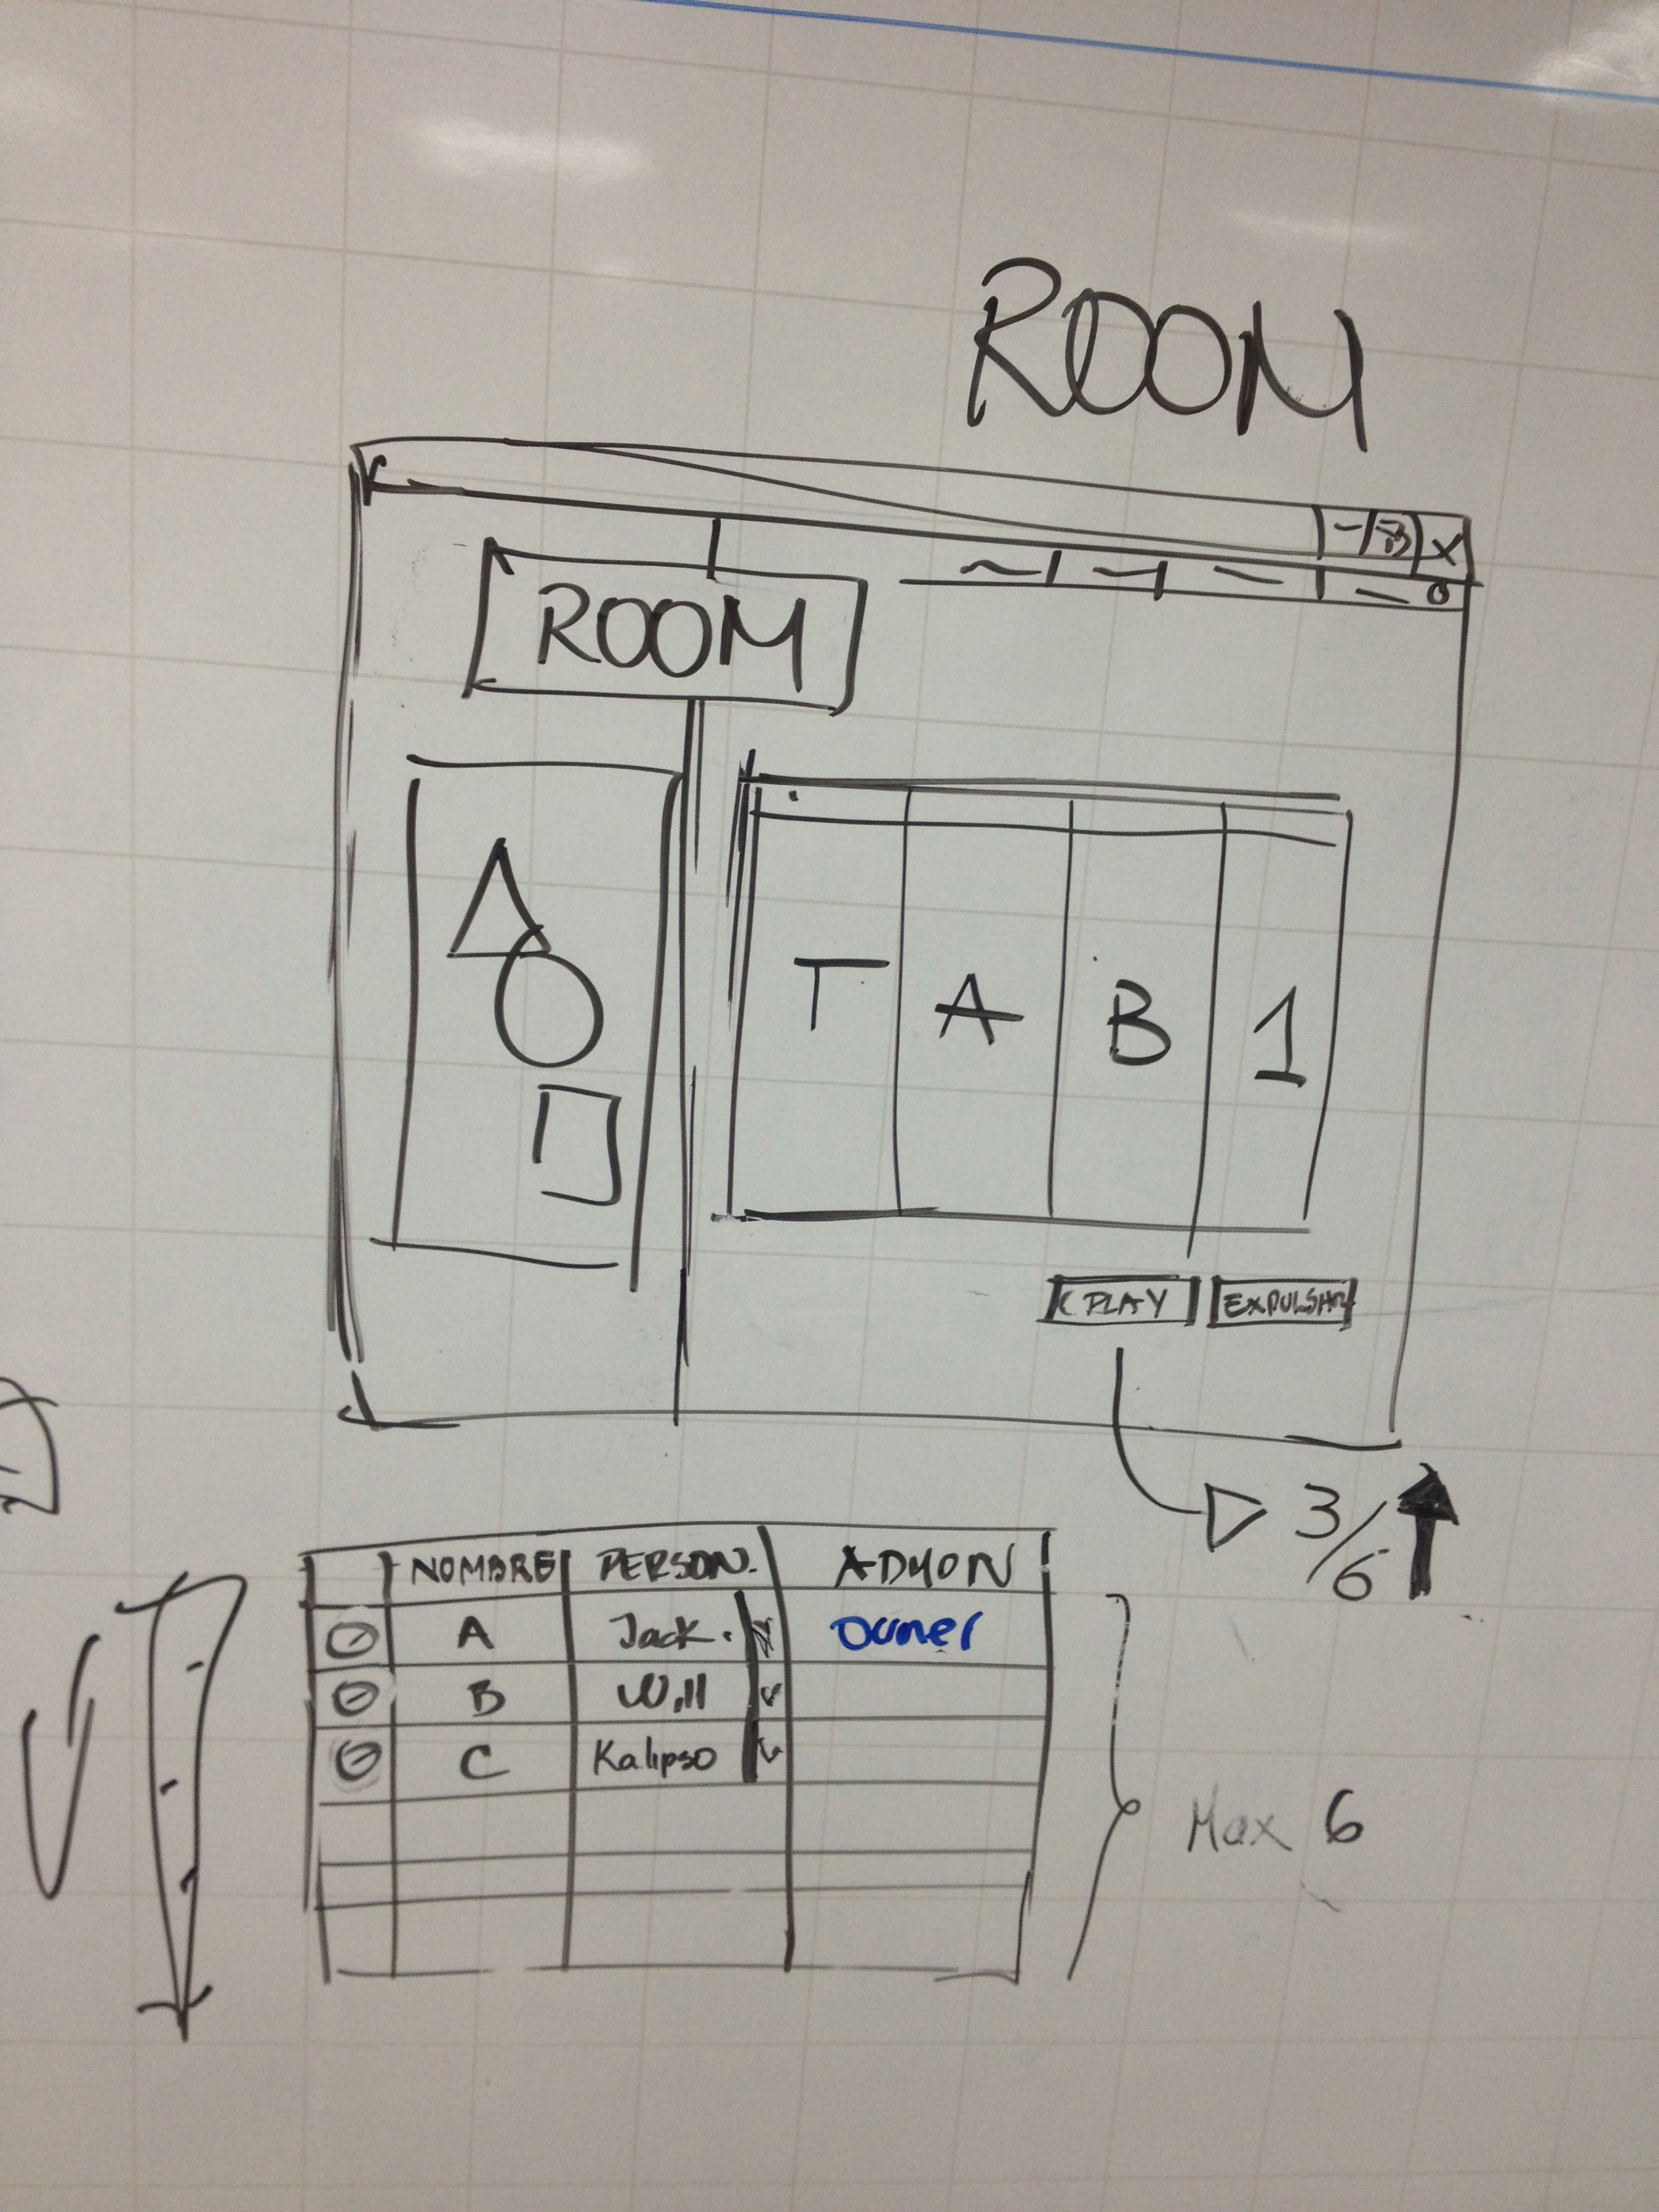 ROOM
X
ROOM
T A B 1
PLAY
3/6
NOMBRE PERSON. ADMON
A Jack. Owner
B Will
C Kalipso
Max 6